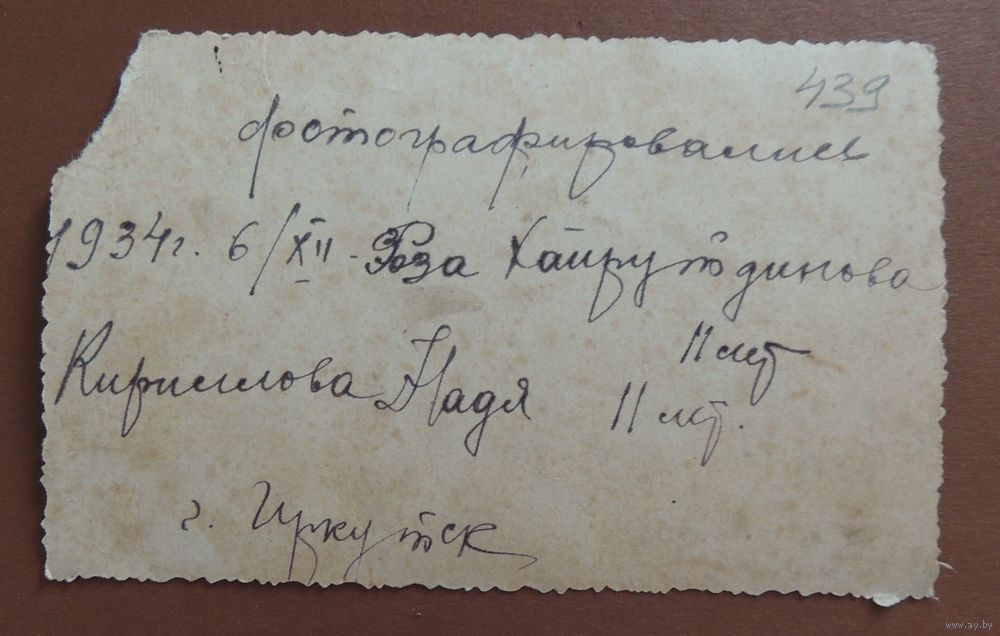 439
фотографировались
1934г. 6/XII - Роза Хайрутдинова
11 лет
Кириллова Надя 11 лет.
г. Иркутск
www.ay.by